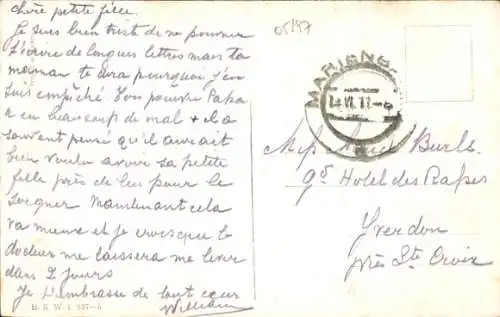 chère petite fille.
Je suis bien triste de ne pouvoir
t'écrire de longues lettres mais ta
maman te dira pourquoi j'en
suis empêché. Ton pauvre Papa
a eu beaucoup de mal + il a
souvent pensé qu'il aurait
bien voulu avoir sa petite
fille près de lui pour le
soigner Maintenant cela
va mieux et je crois que le
docteur me laissera me lever
dans 2 jours
Je t'embrasse de tout cœur
William
B. K. W. I 427-5
05/97
MARIGNE
VI. 11
Burls.
gd Hotel des Rasses
Yverdon
près Ste Croix